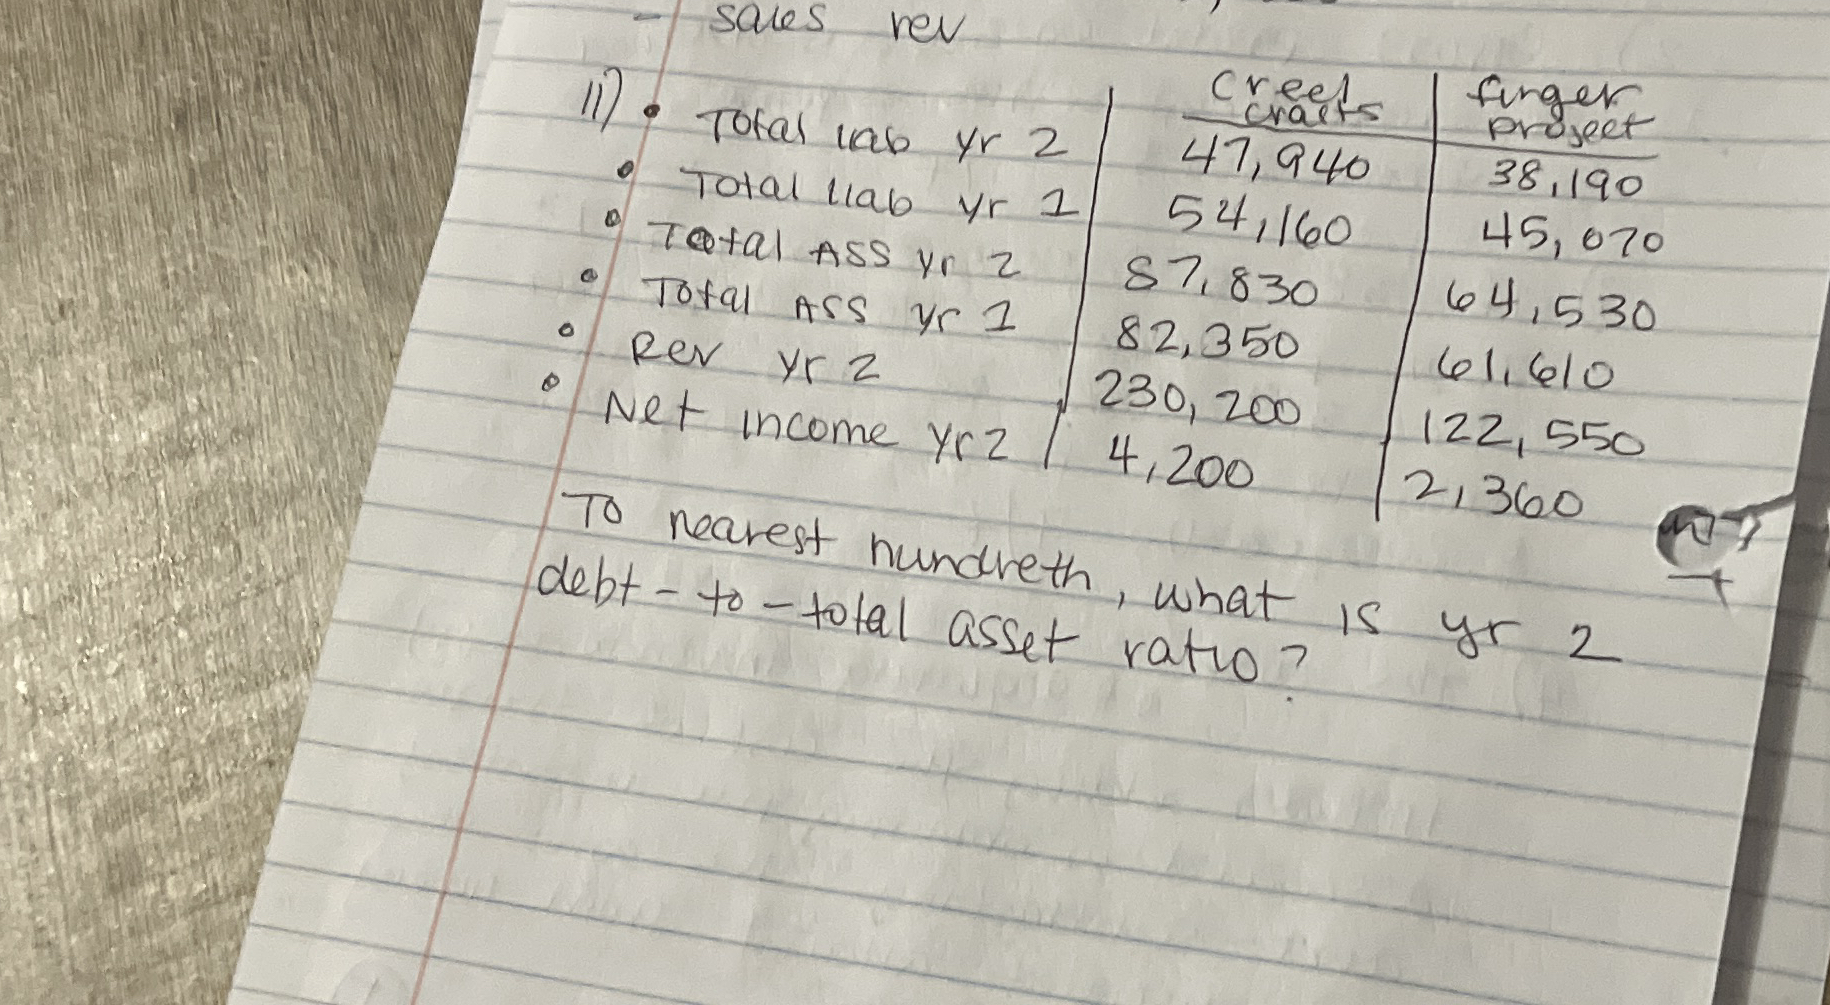 - sales rev
11) • Total liab yr 2 | Creel crafts 47,940 | finger project 38,190
• Total liab yr 1 | 54,160 | 45,070
• Total ASS yr 2 | 87,830 | 64,530
• Total ASS yr 1 | 82,350 | 61,610
• Rev yr 2 | 230,200 | 122,550
• Net income yr 2 | 4,200 | 2,360
To nearest hundreth, what is yr 2
debt-to-total asset ratio?